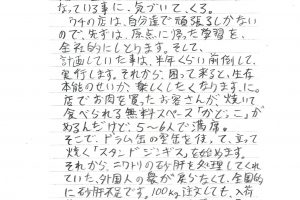 なっている事に、気づいてくる。
ウチの店は、自分達で頑張るしかない
ので、先ずは、原点に帰った学習を、
全社的にしとります。そして、
計画していた事は、半年くらい前倒しで、
実行します。それから、困って来ると、生存
本能のせいか、楽しくしたくなります。に。
店でお肉を買ったお客さんが、焼いて
食べられる無料スペース「かどっこ」が
あるんだけど、5〜6人で満席。
そこで、ドラム缶の空缶を使って、立って
焼く「スタンドジンギス」を始めます。
それから、ニワトリの砂肝を処理してくれ
ていた、外国人の髪が戻らなくて、全国的
に砂肝不足です。100kg注文しても、入荷